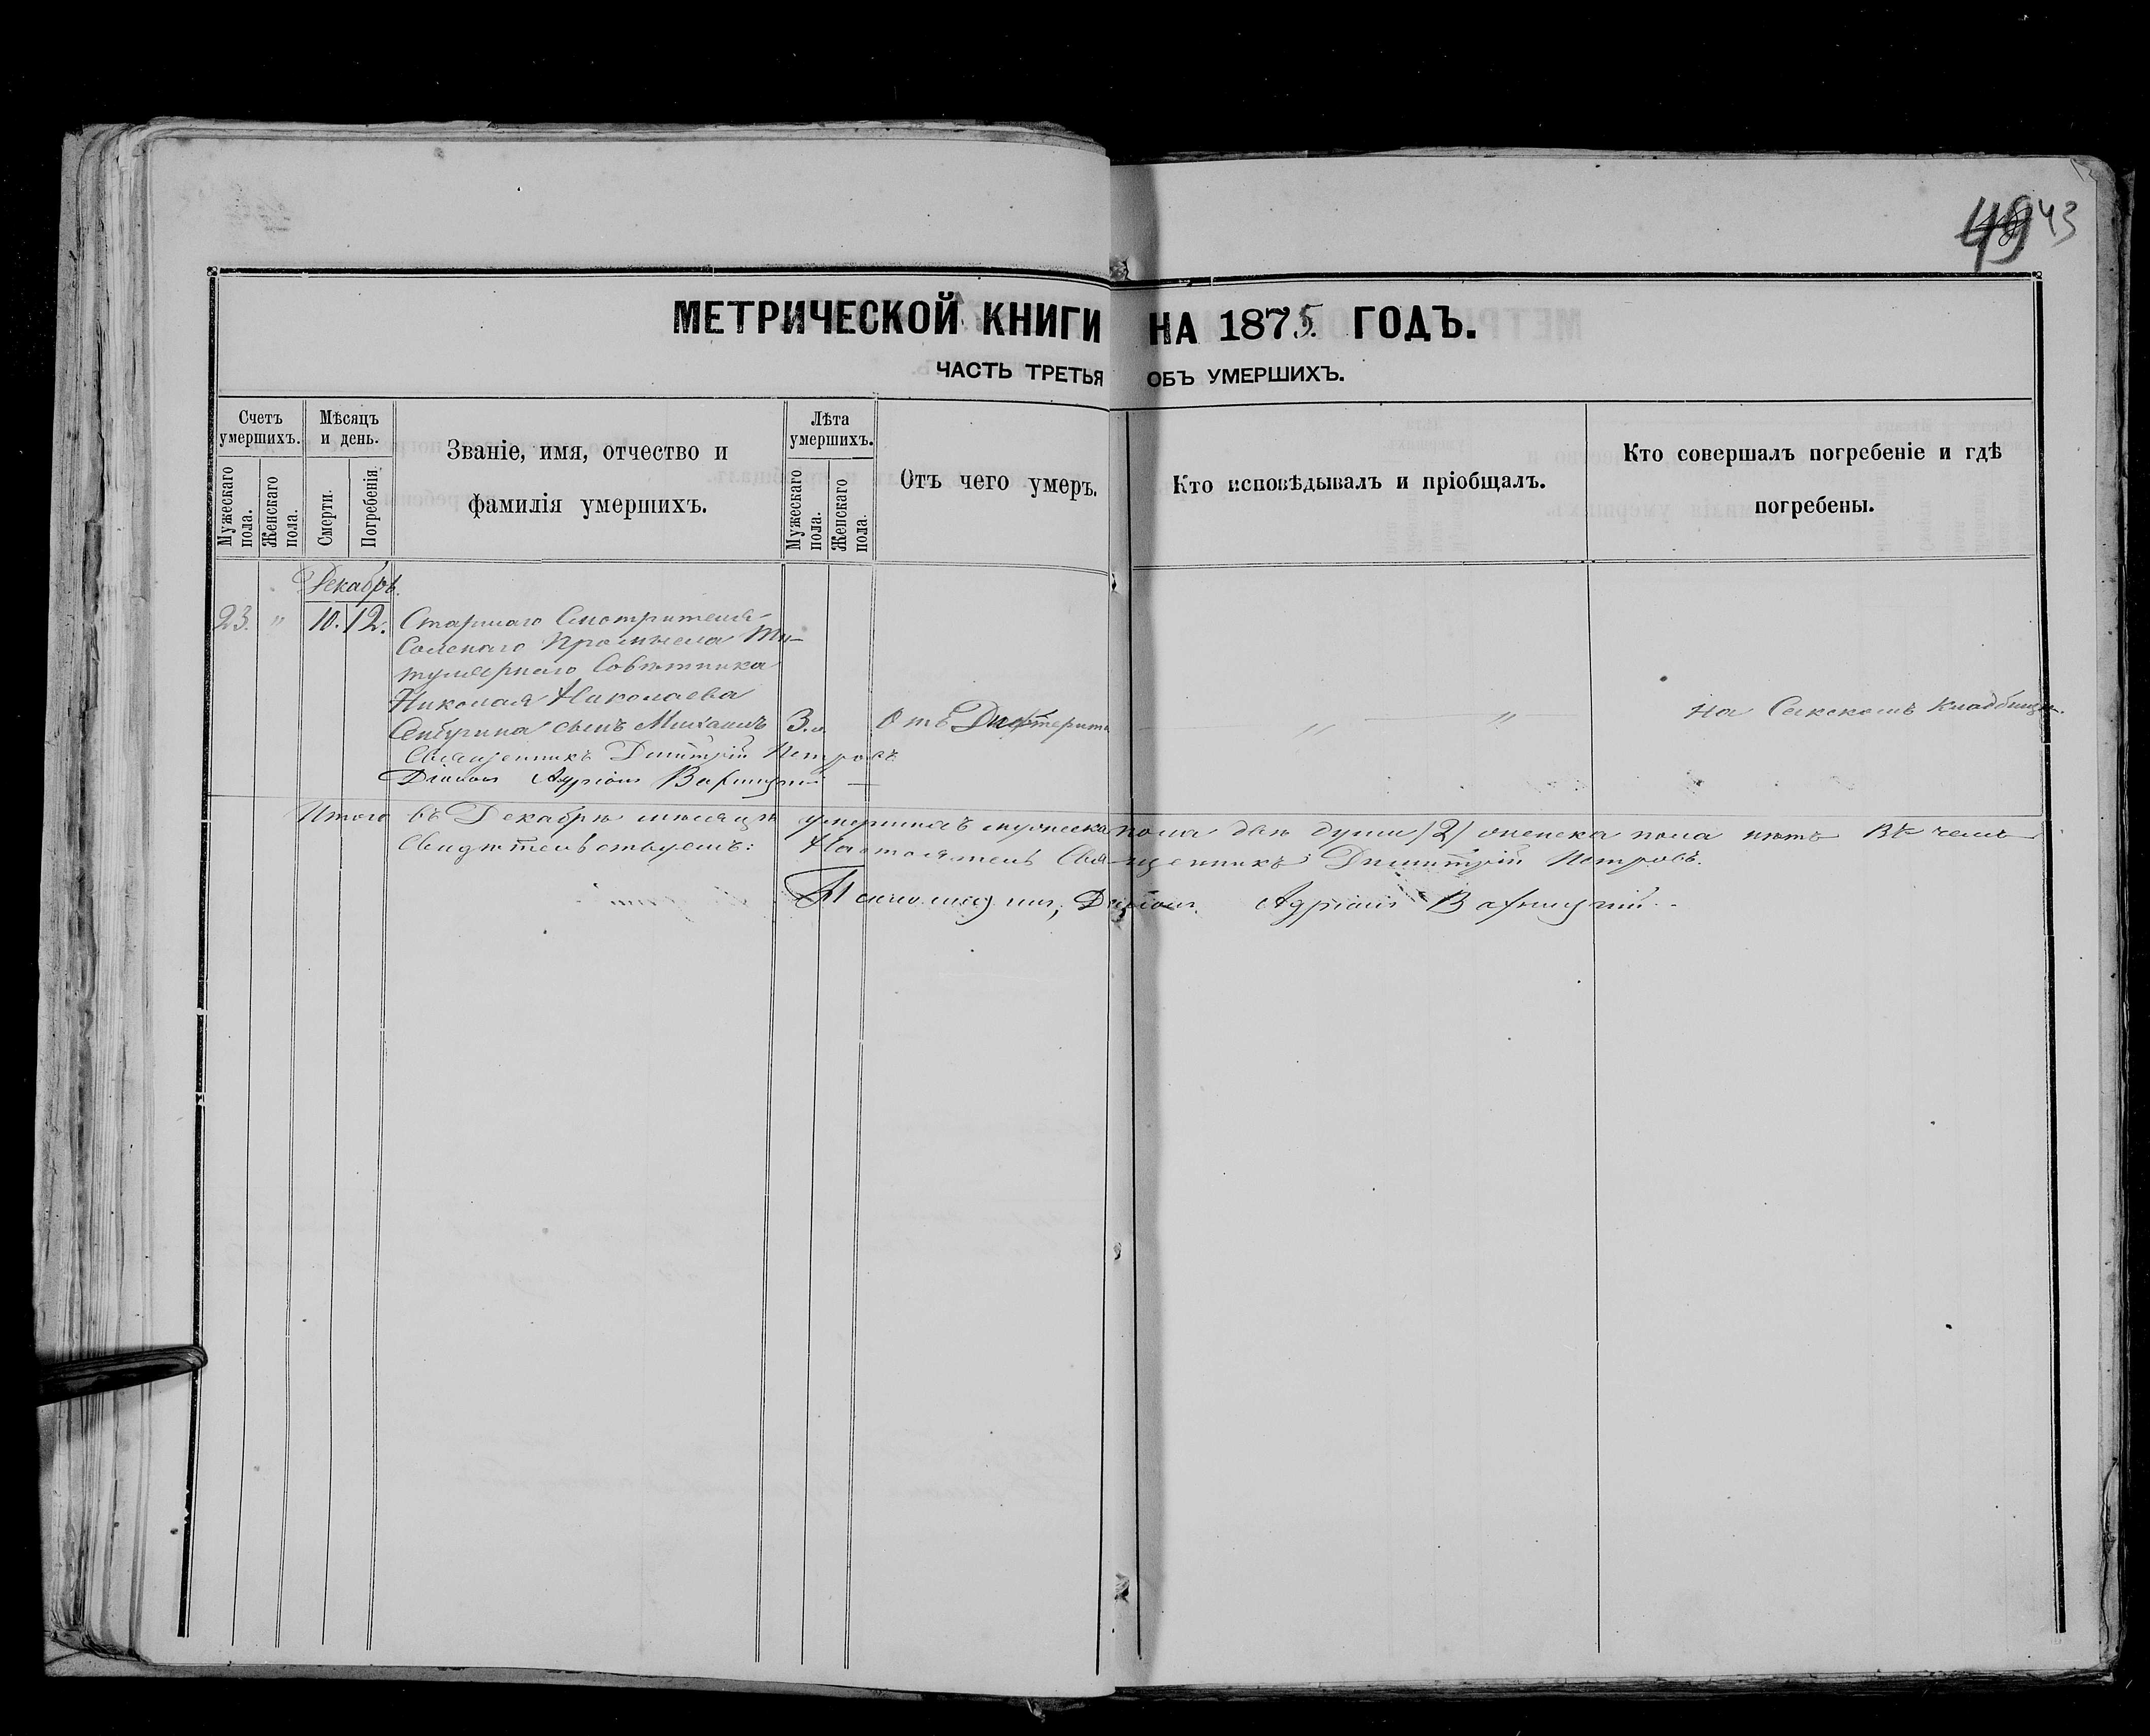 49 43
МЕТРИЧЕСКОЙ КНИГИ НА 1875. ГОДЪ.
ЧАСТЬ ТРЕТЬЯ ОБЪ УМЕРШИХЪ.
Счетъ умершихъ.
Мужескаго пола.
Женскаго пола.
Мѣсяцъ и день.
Смерти.
Погребенія.
Званіе, имя, отчество и
фамилія умершихъ.
Лѣта умершихъ.
Мужескаго пола.
Женскаго пола.
Отъ чего умеръ.
Кто исповѣдывалъ и пріобщалъ.
Кто совершалъ погребеніе и гдѣ
погребены.
Декабрь.
23. " 10. 12. Старшаго Смотрителя
Солянаго Промысла Ти-
тулярнаго Совѣтника
Николая Николаева
сынъ Михаилъ 3. Отъ Дифтерита " " На Сакскомъ Кладбищѣ.
Священникъ Димитрій Петровъ
Діаконъ Адріанъ
Итого въ Декабрѣ мѣсяцѣ умершихъ мужеска пола двѣ души /2/ женска пола нѣтъ Въ чемъ
Свидѣтельствуемъ: Настоятель Священникъ Димитрій Петровъ.
Діаконъ Адріанъ